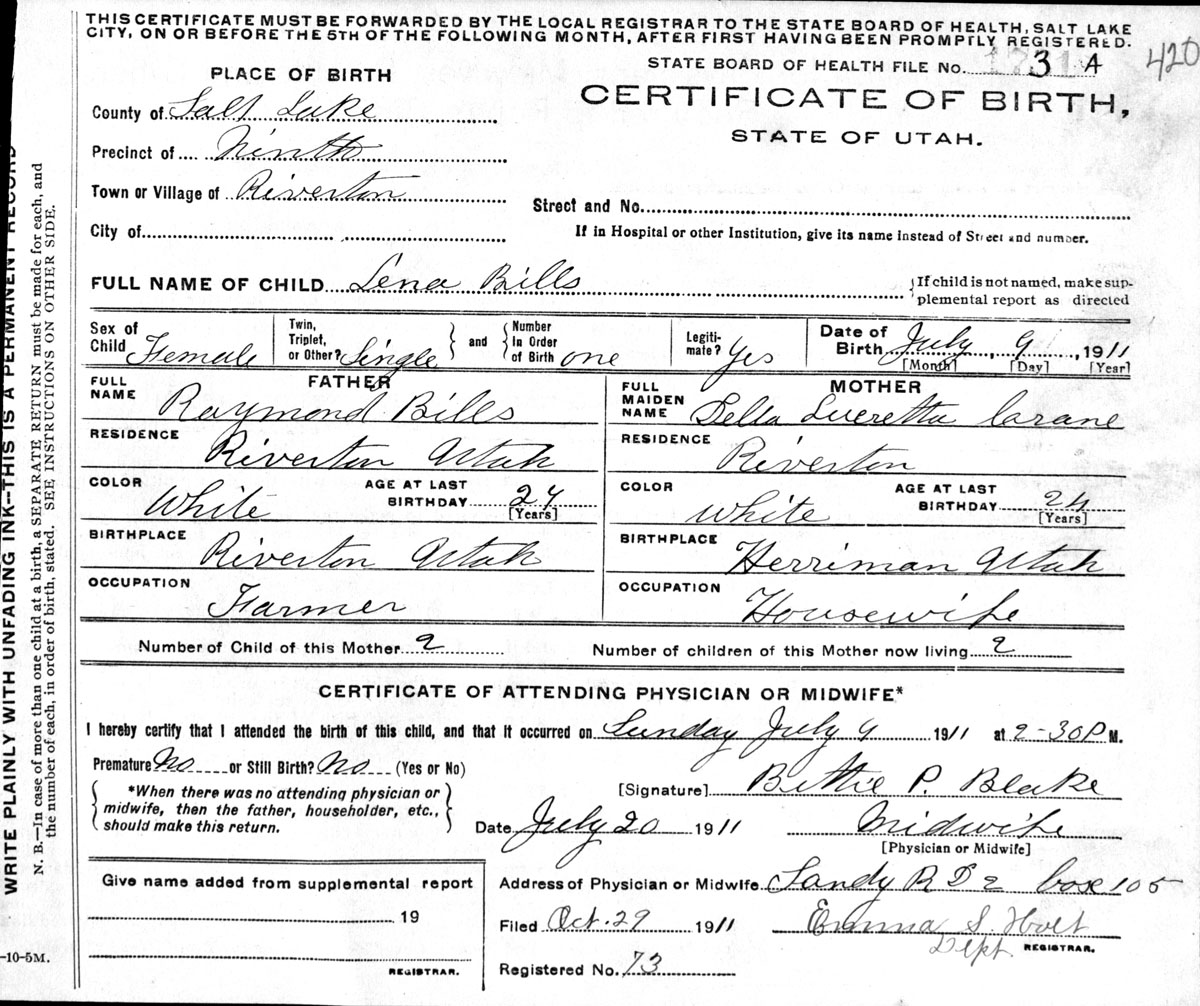 THIS CERTIFICATE MUST BE FORWARDED BY THE LOCAL REGISTRAR TO THE STATE BOARD OF HEALTH, SALT LAKE
CITY, ON OR BEFORE THE 5TH OF THE FOLLOWING MONTH, AFTER FIRST HAVING BEEN PROMPTLY REGISTERED.
STATE BOARD OF HEALTH FILE No. 3 A
420
PLACE OF BIRTH
CERTIFICATE OF BIRTH,
STATE OF UTAH.
County of Salt Lake
Precinct of Ninth
Town or Village of Riverton
Street and No.
City of
If in Hospital or other Institution, give its name instead of Street and number.
FULL NAME OF CHILD Lena Bills
If child is not named, make sup-
plemental report as directed
Sex of Child Female
Twin, Triplet, or Other? Single
and
Number In Order of Birth one
Legiti- mate? Yes
Date of Birth July, 9, 1911
[Month] [Day] [Year]
FATHER
FULL NAME Raymond Bills
RESIDENCE Riverton Utah
COLOR White AGE AT LAST BIRTHDAY 24
[Years]
BIRTHPLACE Riverton Utah
OCCUPATION Farmer
MOTHER
FULL MAIDEN NAME Della Luretta Crane
RESIDENCE Riverton
COLOR White AGE AT LAST BIRTHDAY 24
[Years]
BIRTHPLACE Herriman Utah
OCCUPATION Housewife
Number of Child of this Mother 2
Number of children of this Mother now living 2
CERTIFICATE OF ATTENDING PHYSICIAN OR MIDWIFE*
I hereby certify that I attended the birth of this child, and that it occurred on Sunday July 9 1911 at 2-30 P M.
Premature No or Still Birth? No (Yes or No)
*When there was no attending physician or
midwife, then the father, householder, etc.,
should make this return.
[Signature] Bettie P. Blake
Date July 20 1911 Midwife
[Physician or Midwife]
Give name added from supplemental report
19
REGISTRAR.
Address of Physician or Midwife Sandy R D 2 box 105
Filed Oct. 29 1911 Emma S. Holt
Dept. REGISTRAR.
Registered No. 73
WRITE PLAINLY WITH UNFADING INK--THIS IS A PERMANENT RECORD
N. B.—In case of more than one child at a birth, a SEPARATE RETURN must be made for each, and
the number of each, in order of birth, stated. SEE INSTRUCTIONS ON OTHER SIDE.
-10-5M.